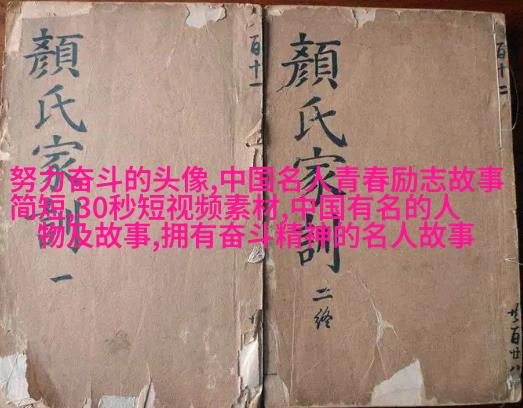 顏氏家訓 一
顏氏家訓 二終
百十一
百十二
努力奋斗的头像,中国名人青春励志故事
简短,30秒短视频素材,中国有名的人
物及故事,拥有奋斗精神的名人故事